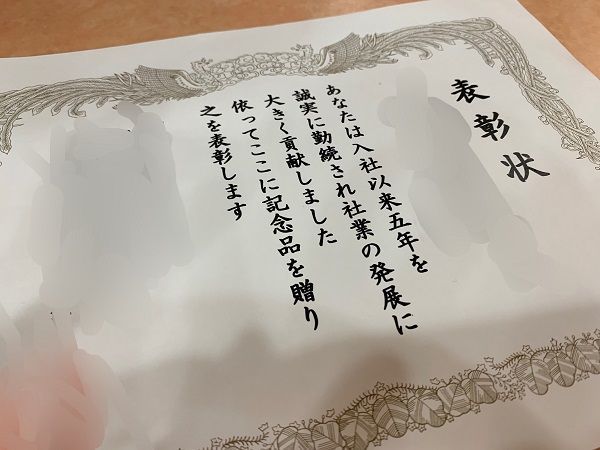 表彰状
あなたは入社以来五年を
誠実に勤続され社業の発展に
大きく貢献しました
依ってここに記念品を贈り
之を表彰します